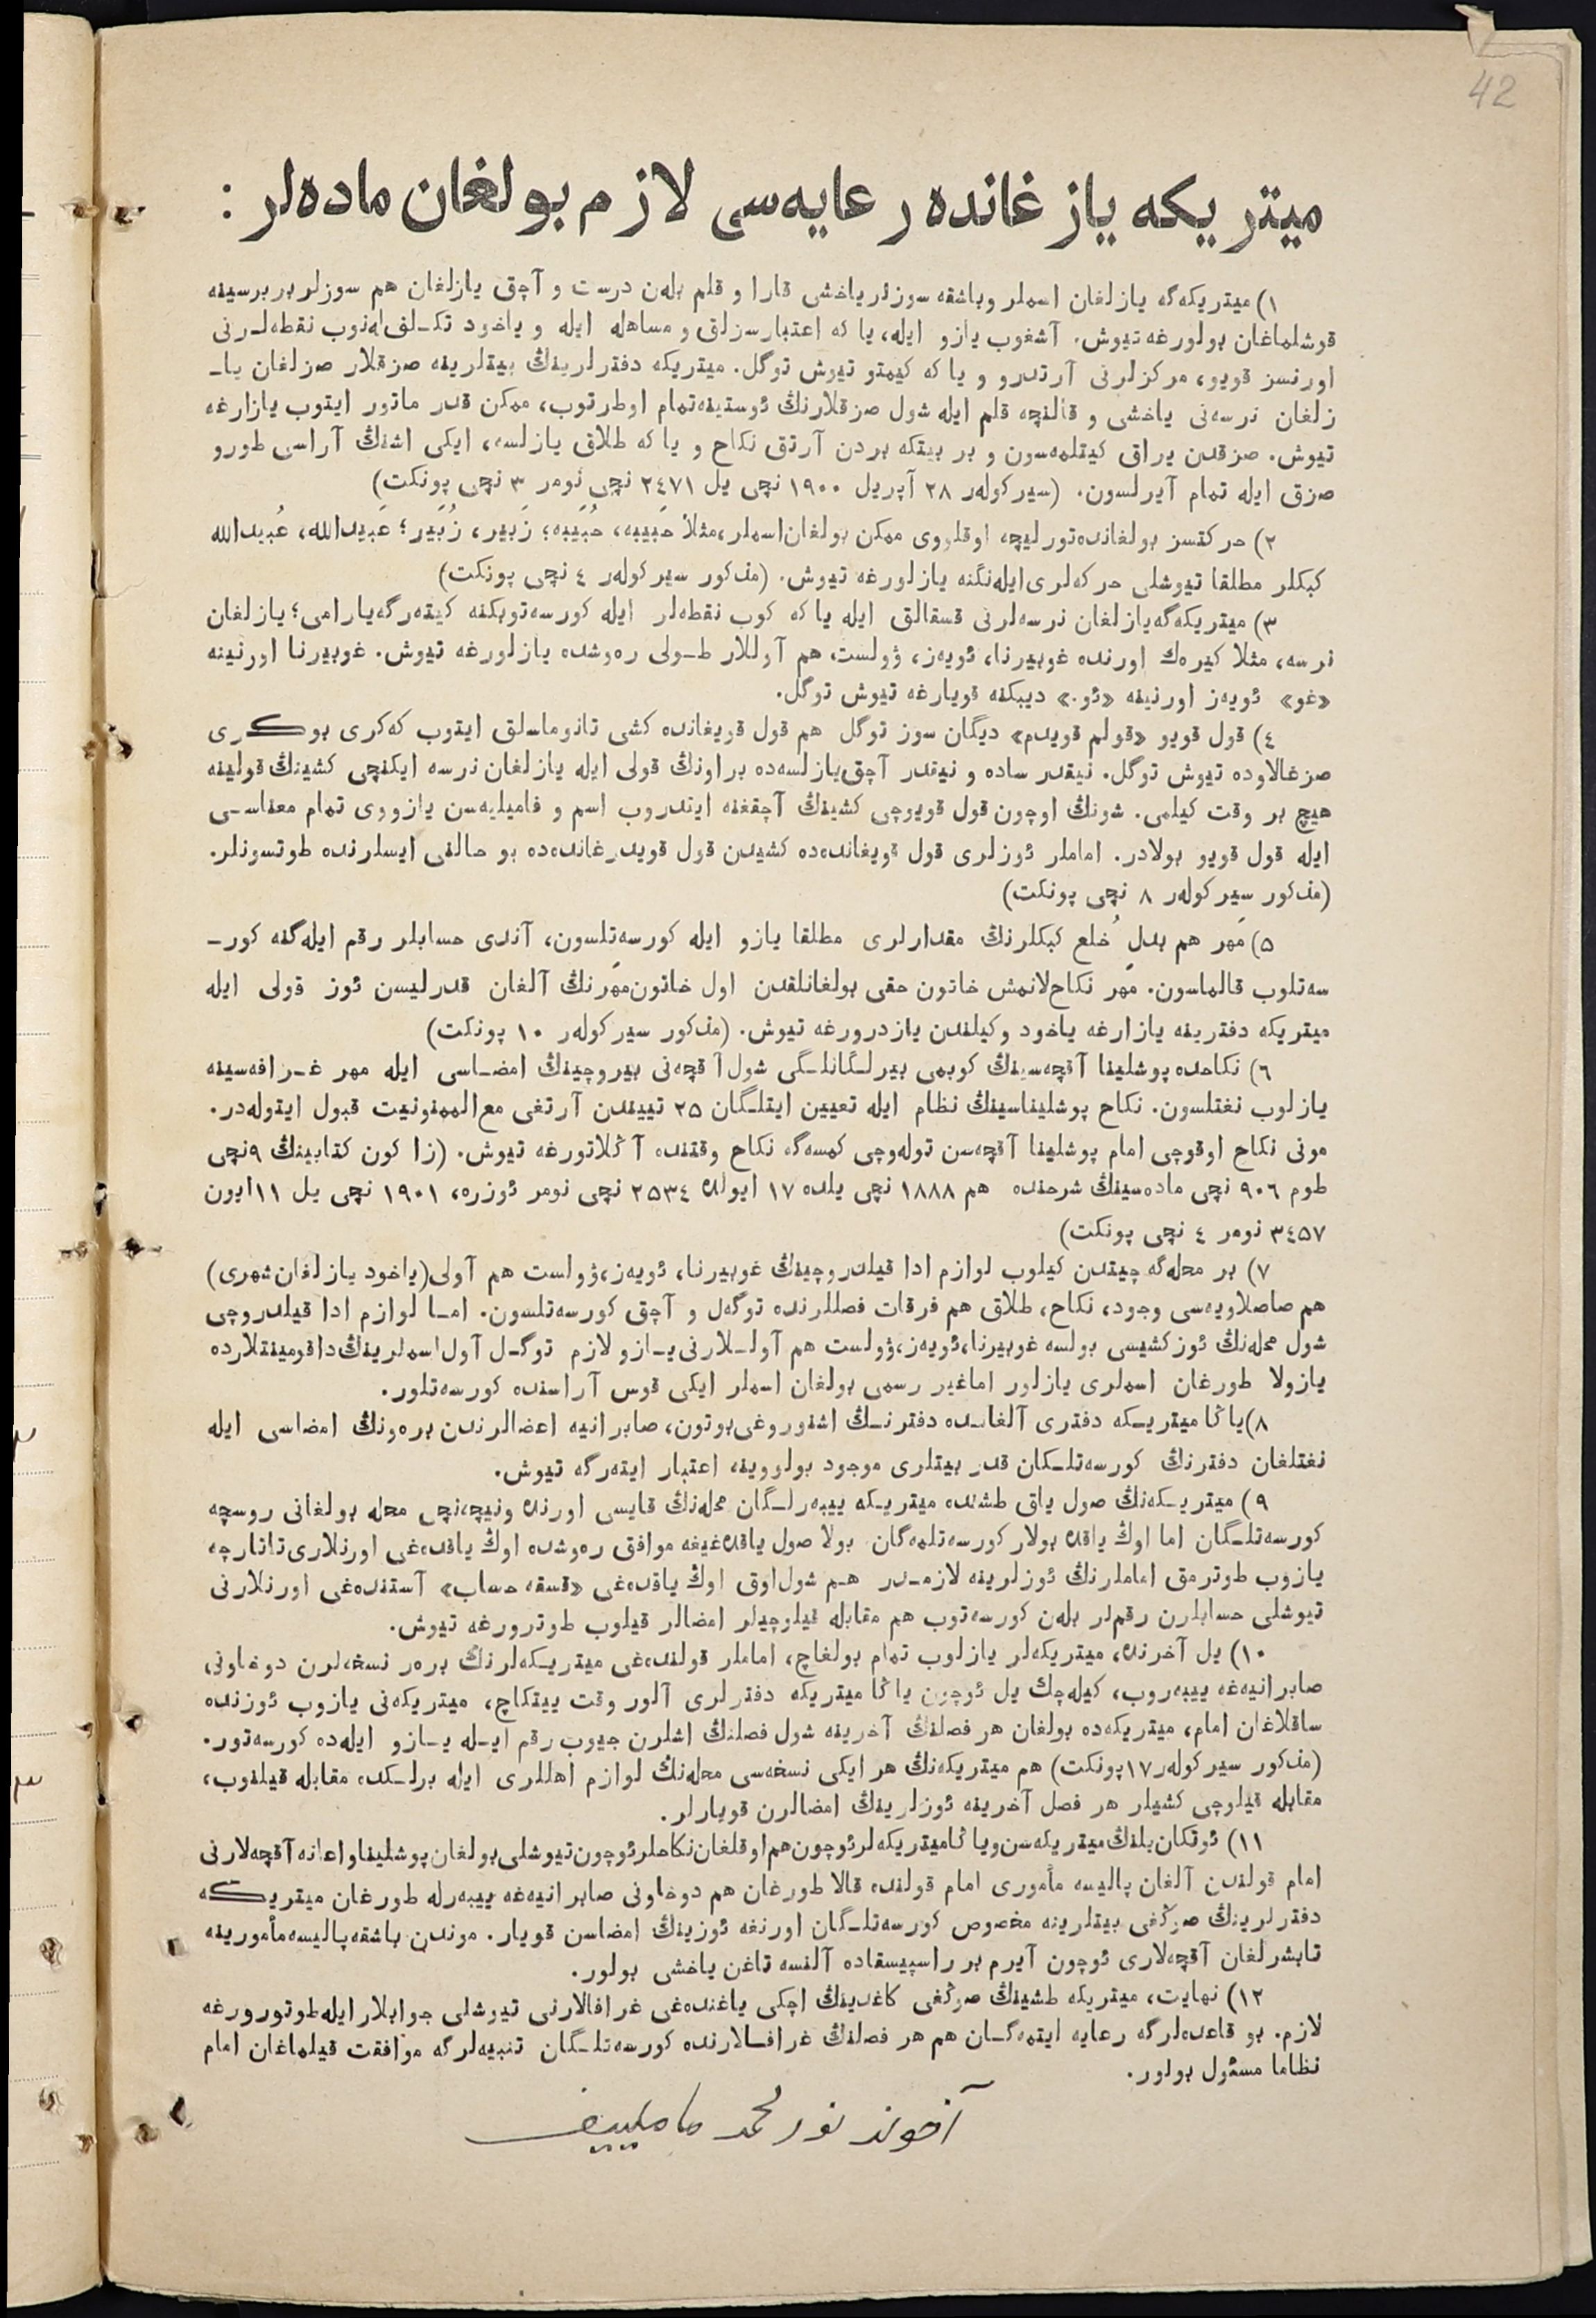 42
ميتريكه يازغانده رعايه‌سى لازم بولغان ماده‌لر :
١) ميتريكه‌گه يازلغان اسملر وباشقه سوزلرياخشى قارا و قلم بله‌ن درست و آچق يازلغان هم سوزلر بربرسينه
قوشلماغان بولورغه تيوش. آشغوب يازو ايله، يا كه اعتبارسزلق و مساهله ايله و ياخود تكـلفله‌نوب نقطه‌لـرنى
اورنسز قويو، مركزلرنى آرتدرو و يا كه كيمتو تيوش توگل. ميتريكه دفترلرينڭ بيتلرينه صزقلار صزلغان ياـ
زلغان نرسه‌نى ياخشى و قالنچه قلم ايله شول صزقلارنڭ ئوستينه‌تمام اوطرتوب، ممكن قدر ماتور ايتوب يازارغه
تيوش. صزقدن يراق كيتلمه‌سون و بر بيتكه بردن آرتق نكاح و يا كه طلاق يازلسه، ايكى اشنڭ آراسى طورو
صزق ايله تمام آيرلسون. (سيركوله‌ر ٢٨ آپريل ١٩٠٠ نچى يل ٢٤٧١ نچى نومر ٣ نچى پونكت)
٢) حركتسز بولغانده‌تورليچه اوقلووى ممكن بولغان‌اسملر،مثلاً حَبيبه، حُبَيبه؛ زَبير، زُبَير؛ عَبيدالله، عُبيدالله
كبكلر مطلقا تيوشلى حركه‌لرى‌ايله‌نگنه يازلورغه تيوش. (مذكور سيركوله‌ر ٤ نچى پونكت)
٣) ميتريكه‌گه‌يازلغان نرسه‌لرنى قسقالق ايله يا كه كوب نقطه‌لر ايله كورسه‌توبكنه كيته‌رگه‌يارامى؛ يازلغان
نرسه، مثلا كيره‌ك اورنده غوبيرنا، ئويه‌ز، ۋولست، هم آوللار طـولى ره‌وشده يازلورغه تيوش. غوبيرنا اورنينه
«غو» ئويه‌ز اورنينه «ئو.» ديبكنه قويارغه تيوش توگل.
٤) قول قويو «قولم قويدم» ديگان سوز توگل هم قول قويغانده كشى تانوماسلق ايتوب كه‌كرى بوكرى
صزغالاوده تيوش توگل. نيقدر ساده و نيقدر آچق‌يازلسه‌ده براونڭ قولى ايله يازلغان نرسه ايكنچى كشينڭ قولينه
هيچ بر وقت كيلمى. شونڭ اوچون قول قويوچى كشينڭ آچقغنه ايتدروب اسم و فاميليه‌سن يازووى تمام معناسـى
ايله قول قويو بولادر. اماملر ئوزلرى قول قويغانده‌ده كشيدن قول قويدرغانده‌ده بو حالنى ايسلرنده طوتسونلر.
(مذكور سيركوله‌ر ٨ نچى پونكت)
٥) مَهر هم بدلِ خُلع كبكلرنڭ مقدارلرى مطلقا يازو ايله كورسه‌تلسون، آندى حسابلر رقم ايله‌گنه كورـ
سه‌تلوب قالماسون. مَهر نكاح‌لانمش خاتون حقى بولغانلقدن اول خاتون‌مَهرنڭ آلغان قدرليسن ئوز قولى ايله
ميتريكه دفترينه يازارغه ياخود وكيلندن يازدرورغه تيوش. (مذكور سيركوله‌ر ١٠ پونكت)
٦) نكاحده‌پوشلينا آقچه‌سينڭ كوبمى بيرلـگانلـگى شول‌آقچه‌نى بيروچينڭ امضـاسى ايله مهر غـرافه‌سينه
يازلوب نغتلسون. نكاح پوشليناسينڭ نظام ايله تعيين ايتلـگان ٢٥ تييندن آرتغى مع‌الممنونيت قبول ايتوله‌در.
مونى نكاح اوقوچى امام پوشلينا آقچه‌سن توله‌وچى كمسه‌گه نكاح وقتنده آڭلاتورغه تيوش. (زاكون كتابينڭ ٩نچى
طوم ٩٠٦ نچى ماده‌سينڭ شرحنده هم ١٨٨٨ نچى يلده ١٧ ايولده ٢٥٣٤ نچى نومر ئوزره، ١٩٠١ نچى يل ١١ايون
٣٤٥٧ نومر ٤ نچى پونكت)
٧) بر محله‌گه چيتدن كيلوب لوازم ادا قيلدروچينڭ غوبيرنا، ئويه‌ز،ۋولست هم آولى(ياخود يازلغان‌شهرى)
هم صاصلاويه‌سى وجود، نكاح، طلاق هم فرقات فصللرنده توگه‌ل و آچق كورسه‌تلسون. امـا لوازم ادا قيلدروچى
شول محله‌نڭ ئوزكشيسى بولسه غوبيرنا،ئويه‌ز،ۋولست هم آولـلارنى يـازو لازم توگـل آول‌اسملرينڭ‌داقومينتلارده
يازولا طورغان اسملرى يازلور اماغير رسمى بولغان اسملر ايكى قوس آراسنده كورسه‌تلور.
٨)ياڭا ميتريـكه دفترى آلغانـده دفترنـڭ اشنوروغى‌بوتون، صابرانيه اعضالرندن بره‌ونڭ امضاسى ايله
نغتلغان دفترنڭ كورسه‌تلـكان قدر بيتلرى موجود بولووينه اعتبار ايته‌رگه تيوش.
٩) ميتريـكه‌نڭ صول ياق طشنده ميتريـكه ييبه‌رلـگان محله‌نڭ قايسى اورنده ونيچه‌نچى محله بولغانى روسچه
كورسه‌تلـگان اما اوڭ ياقده بولار كورسه‌تلمه‌گان. بولا صول ياقده‌غيغه موافق ره‌وشده اوڭ ياقده‌غى اورنلارى‌تاتارچه
يازوب طوترمق اماملرنڭ ئوزلرينه لازمـدر هـم شول‌اوق اوڭ ياقده‌غى «قسقه حساب» آستنده‌غى اورنلارنى
تيوشلى حسابلرن رقملر بله‌ن كورسه‌توب هم مقابله قيلوچيلر امضالر قيلوب طوترورغه تيوش.
١٠) يل آخرنده، ميتريكه‌لر يازلوب تمام بولغاچ، اماملر قولنده‌غى ميتريـكه‌لرنڭ بره‌ر نسخه‌لرن دوخاونى
صابرانيه‌غه ييبه‌روب، كيله‌چك يل ئوچون ياڭا ميتريكه دفترلرى آلور وقت ييتكاچ، ميتريكه‌نى يازوب ئوزنده
ساقلاغان امام، ميتريكه‌ده بولغان هر فصلنڭ آخرينه شول فصلنڭ اشلرن جيوب رقم ايـله يـازو ايله‌ده كورسه‌تور.
(مذكور سيركوله‌ر١٧پونكت) هم ميتريكه‌نڭ هر ايكى نسخه‌سى محله‌نڭ لوازم اهللرى ايله برلـكده مقابله قيلنوب،
مقابله قيلوچى كشيلر هر فصل آخرينه ئوزلرينڭ امضالرن قويارلر.
١١) ئوتكان‌يلنڭ‌ميتريكه‌سن‌وياڭاميتريكه‌لرئوچون‌هم‌اوقلغان‌نكاحلرئوچون‌تيوشلى‌بولغان‌پوشليناواعانه‌آقچه‌لارنى
امام قولندن آلغان پاليسه مأمورى امام قولنده قالا طورغان هم دوخاونى صابرانيه‌غه ييبه‌رله طورغان ميتريكه
دفترلرينڭ صوڭغى بيتلرينه مخصوص كورسه‌تلـگان اورنغه ئوزينڭ امضاسن قويار. موندن باشقه‌پاليسه‌مأمورينه
تابشرلغان آقچه‌لارى ئوچون آيرم بر راسپيسقاده آلنسه تاغن ياخشى بولور.
١٢) نهايت، ميتريكه طشينڭ صوڭغى كاغدينڭ اچكى ياغنده‌غى غرافالارنى تيوشلى جوابلار ايله‌طوتورورغه
لازم. بو قاعده‌لرگه رعايه ايتمه‌گـان هم هر فصلنڭ غرافـالارنده كورسه‌تلـگان تنبيه‌لرگه موافقت قيلماغان امام
نظاما مسئول بولور.
آخوند نورمحمد ماملييف